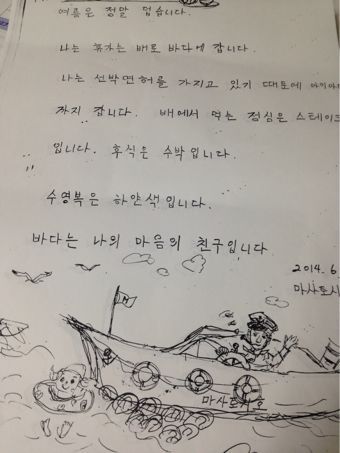 여름은 정말 덥습니다.
나는 휴가는 배로 바다에 갑니다.
나는 선박면허를 가지고 있기 때문에
까지 갑니다. 배에서 먹는 점심은 스테이크
입니다. 후식은 수박입니다.
수영복은 하얀색입니다.
바다는 나의 마음의 친구입니다
2014.6
마사토시
마사토시호